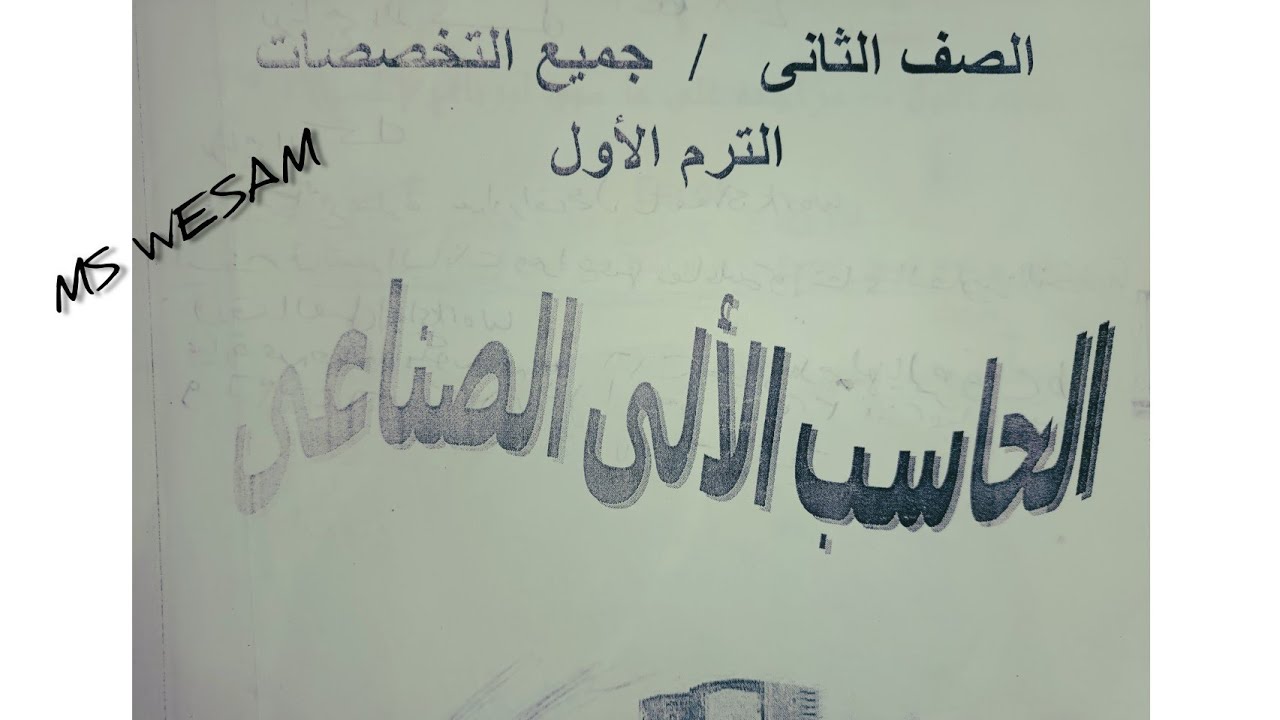 الصف الثانى / جميع التخصصات
الترم الأول
MS WESAM
الحاسب الألى الصناعى